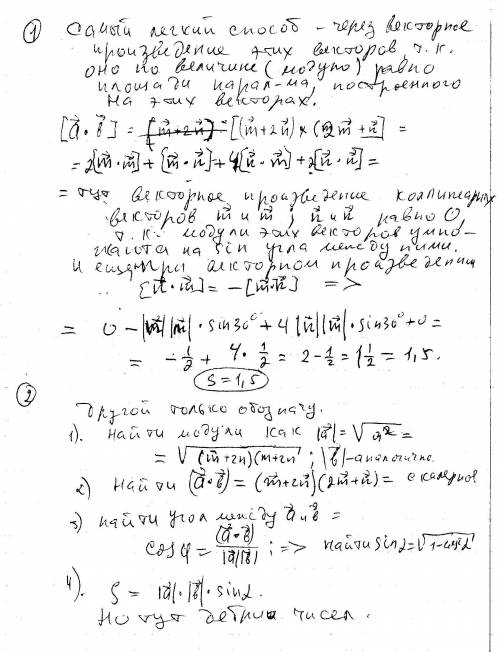 ① Самый легкий способ – через векторное
произведение этих векторов, т.к.
оно по величине (модулю) равно
площади парал-ма, построенного
на этих векторах.
[a⃗·b⃗] = [(m⃗+2n⃗)×(2m⃗+n⃗)] =
= 2[m⃗·m⃗]+[m⃗·n⃗]+4[n⃗·m⃗]+2[n⃗·n⃗] =
= тут векторное произведение коллинеарных
векторов m⃗ и m⃗; n⃗ и n⃗ равно 0,
т.к. модули этих векторов умно-
жаются на sin угла между ними.
И еще: при векторном произведении
[n⃗·m⃗] = -[m⃗·n⃗] =>
= 0 - |m⃗||n⃗|·sin30° + 4|n⃗||m⃗|·sin30°+0 =
= -1/2 + 4·1/2 = 2-1/2 = 1 1/2 = 1,5.
S=1,5
② Другой только обозначу.
1). Найти модули как |a⃗| = √a⃗² =
= √(m⃗+2n)(m+2n ; |b⃗| - аналогично
2) Найти (a⃗·b⃗) = (m⃗+2n⃗)(2m⃗+n⃗) = скалярное
3) найти угол между a⃗ и b⃗ =
cosφ = (a⃗·b⃗)/|a⃗||b⃗| ; => найти sin2 = √1-cos²2
4). S = |a⃗|·|b⃗|·sin2.
Но тут чисел.